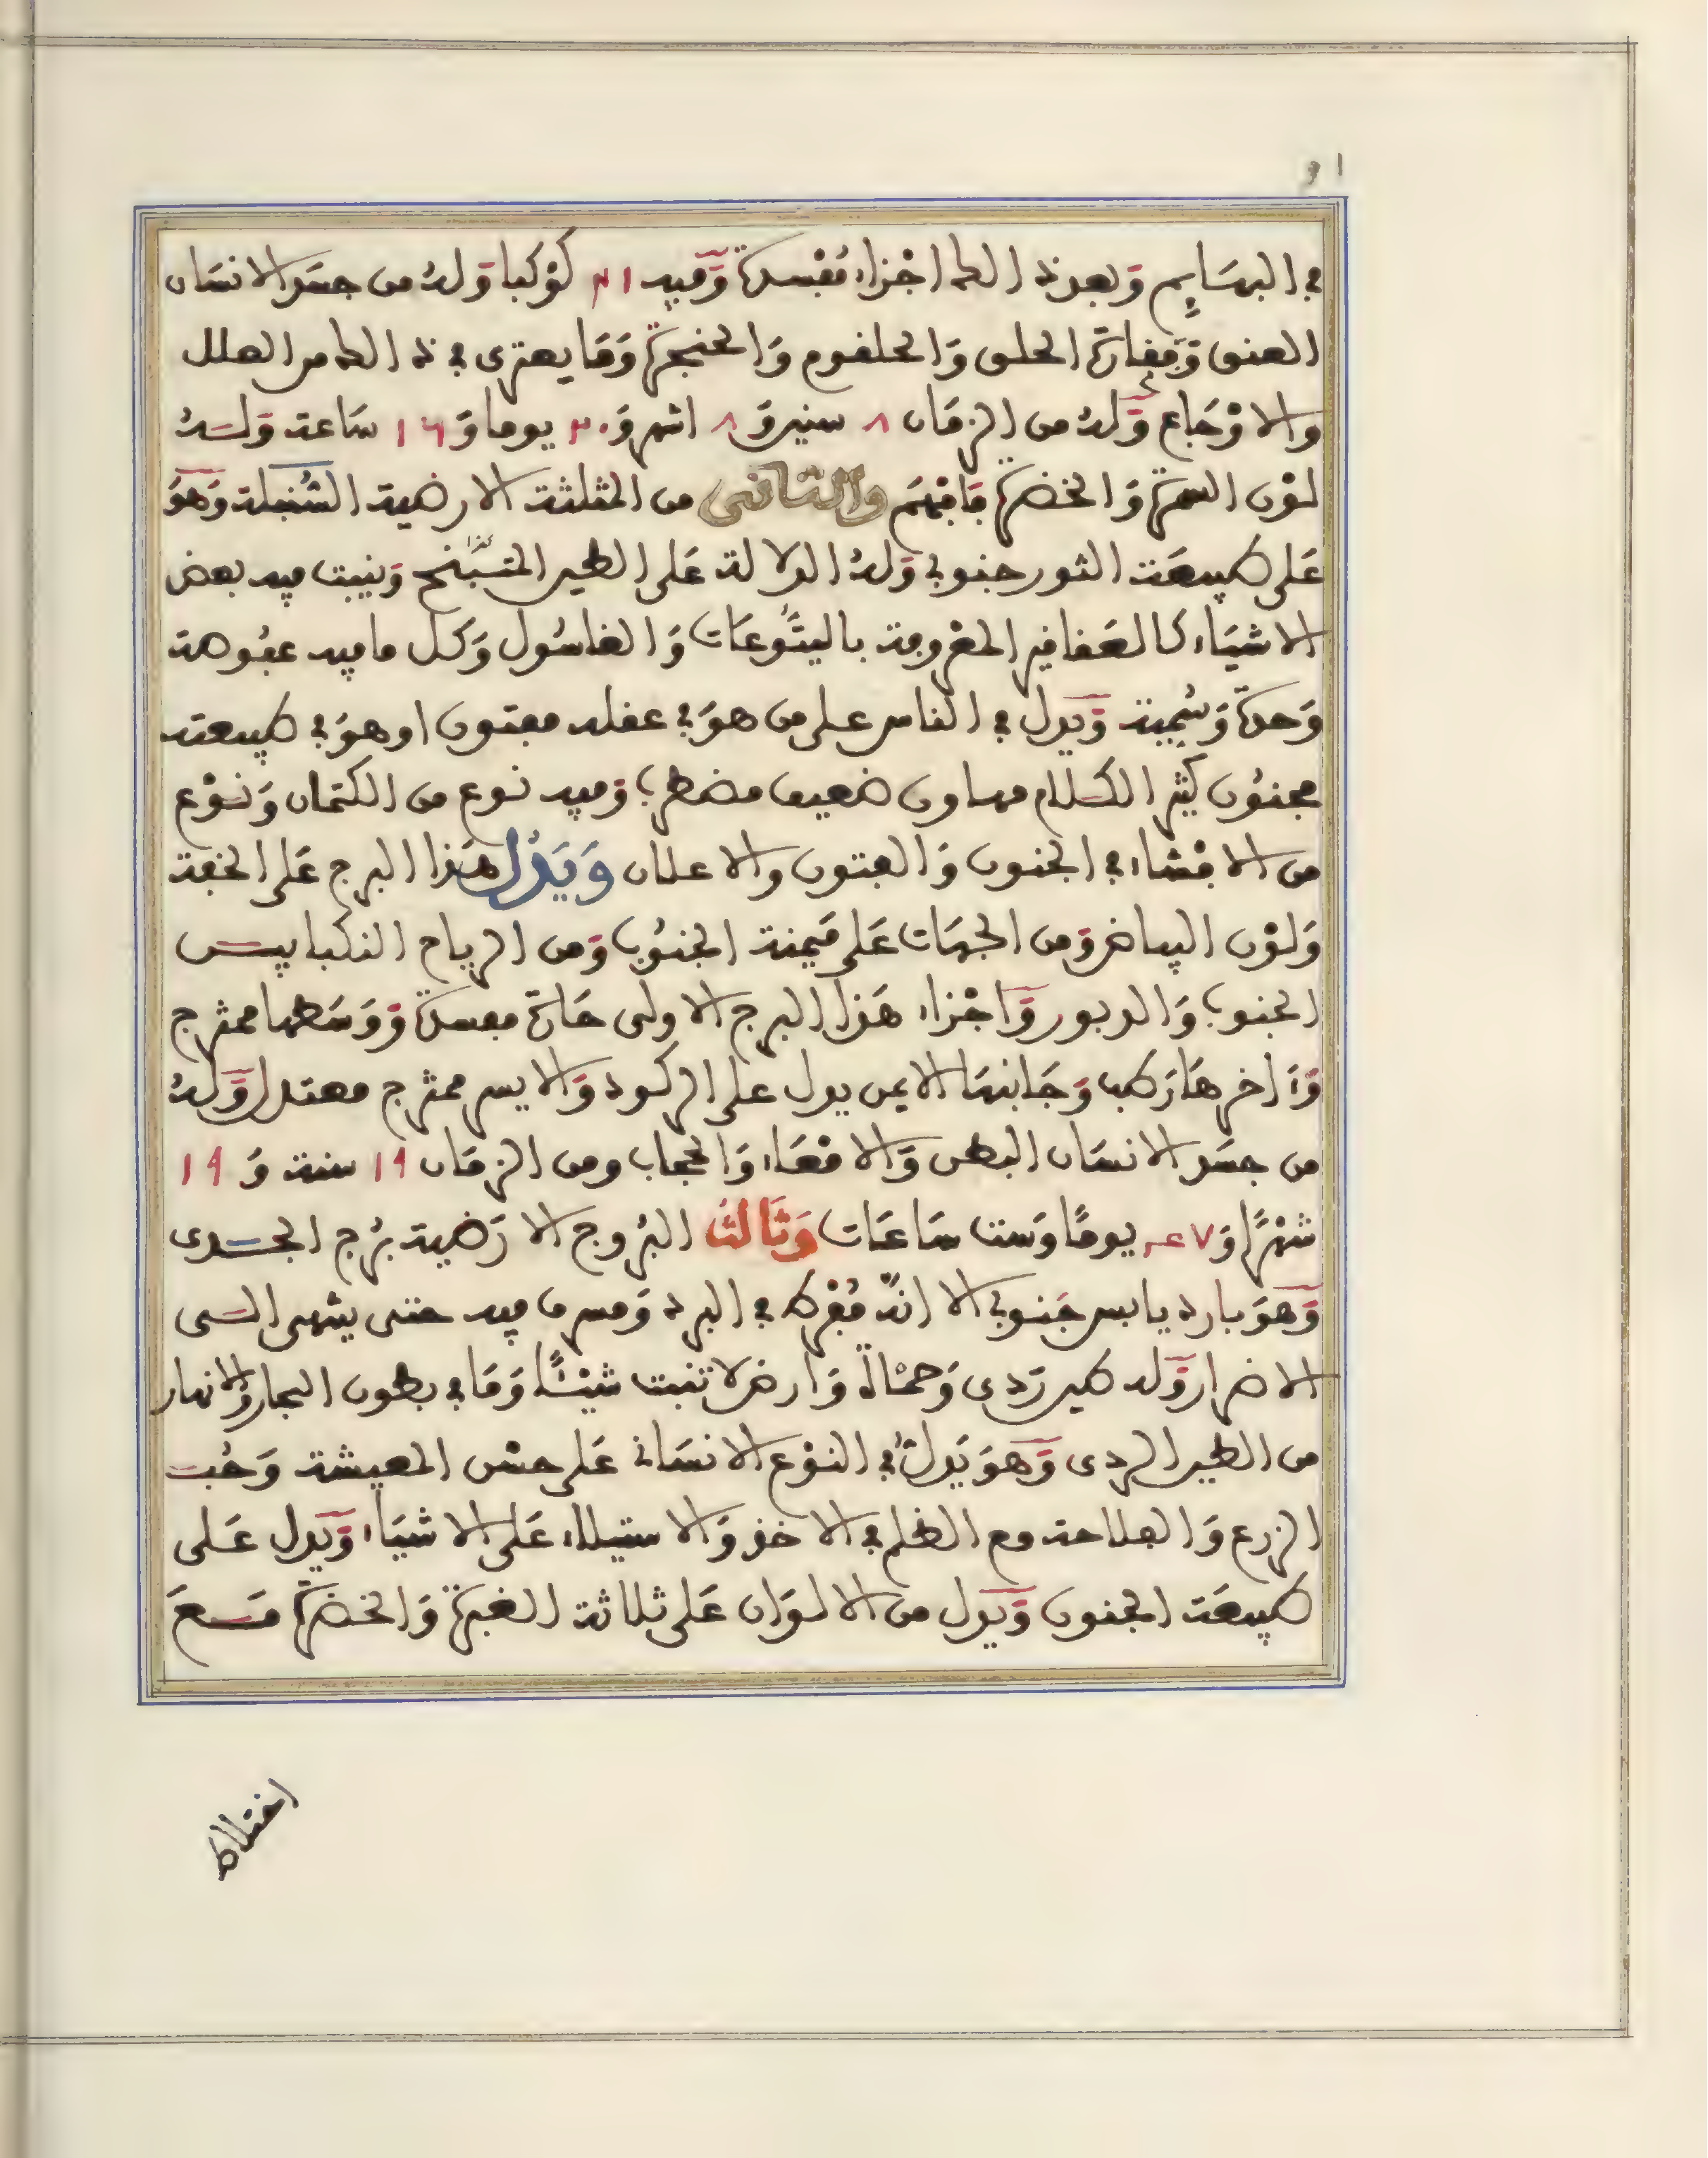 في البهَايِم وَبعد ذالك اجْزاء مُفْسدة وَفيه ١٣ كَوْكبا وَلهُ من جسَد الانسَان
العنق وَفقارة الحلق وَالحلقوم وَالحنجرة وَمَا يعتري في ذالك من العلل
والاوْجَاع وَلهُ من الزمَان ٨ سنين وَ ٨ اشهر وَ ٢٠ يوما وَ ١٦ سَاعة وَلـهُ
لوْن السمرة وَالخضرة فَافهَم والثاني من المثلثة الارضية السُّنبلة وَهوَ
عَلى طبيعَة الثور جنوبي وَلهُ الدلالة عَلى الطين المتسَبّخ وَينبت فيه بعض
الاشيَاء كالعَقاقير المعْروفة باليتُّوعَات وَالغاسُول وَكل ما فيه عفُوصة
وَحدّة وَسُمِّية وَيدل في الناس على من هوَ في عقله مفتون او هوَ في طبيعته
مجنُون كثير الكلام مهاون ضعيف مضطرب وَفيه نوع من الكتمان وَنوْع
من الافْشاء في الجنون وَالفتون والاعلان وَيَدُل هَذا البرج عَلى الخفة
وَلوْن البياض وَمن الجهَات عَلى مَيمنة الجنُوب وَمن الرياح النكبا بيـن
الجنوب وَالدبور وَاجْزاء هَذا البرج الاولى حَارة مفسدة وَوَسَطها ممتزج
وَءاخرهَا رَطب وَجَانبهَا الايمن يدل على الركود وَالايسر ممتزج معتدل وَلهُ
من جسَد الانسَان البطن وَالامْعَاء وَالحجاب ومن الزمَان ١٩ سنة وَ ١٩
شهْرًا وَ ٢٧ يومًا وَست سَاعَات وَثَالثُ البُروج الارَضية بُرج الجـدى
وَهوَ بارد يابس جَنوبي الا انهُ مُفْرط في البرد وَمسرف فيه حتى ينتهي الـى
الاضرار وَله طين رَدي وَحمْأة وَارض لا تنبت شيْئًا وَمَا في بطون البحار وَالانهار
من الطين الردي وَهوَ يَدلُّ في النوْع الانسَاني عَلى حسْن المعيشة وَحُب
الزرع وَالفلاحة مع الظلم في الاخذ وَالاستيلاء عَلى الاشيَاء وَيدل عَـلى
طبيعَة الجنون وَيَدل من الالوَان عَلى ثلاثة الغبرة وَالخضرة مَـعَ
اختلاط